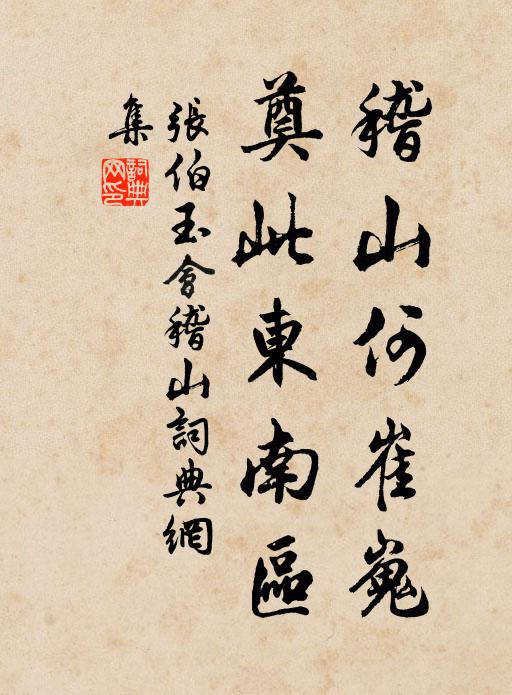 稽山何崔嵬
奠此東南區
張伯玉會稽山詞典網
集
詞典網印